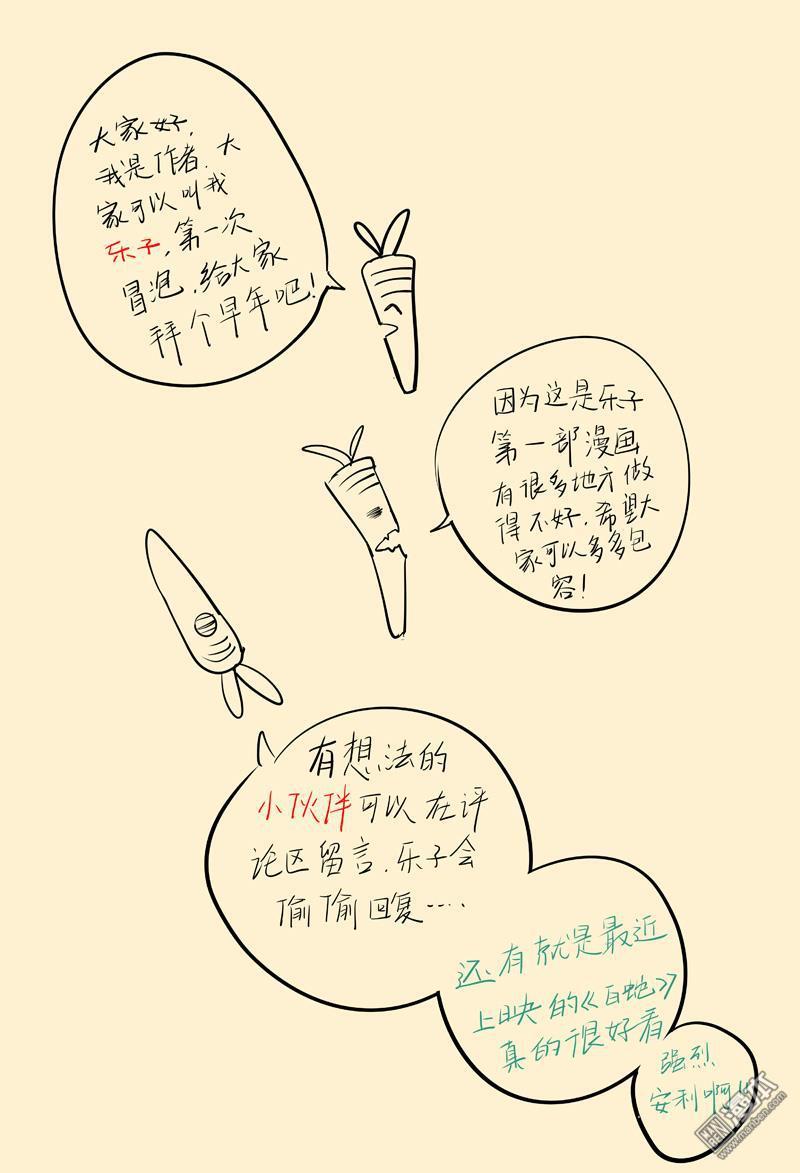 大家好,
我是作者.大
家可以叫我
乐子,第一次
冒泡,给大家
拜个早年吧!
因为这是乐子
第一部漫画
有很多地方做
得不好,希望大
家可以多多包
容!
有想法的
小伙伴可以在评
论区留言,乐子会
偷偷回复……
还有就是最近
上映的《白蛇》
真的很好看
强烈
安利啊!!
漫本
www.manben.com